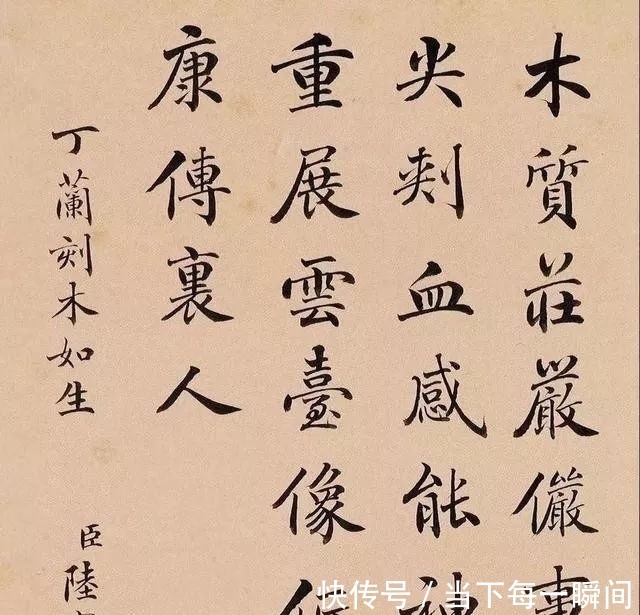 木質莊嚴儼事
尖刾血感能
重展雲臺像
康傳裏人
丁蘭刻木如生
臣陸
快传号/当下每一瞬间